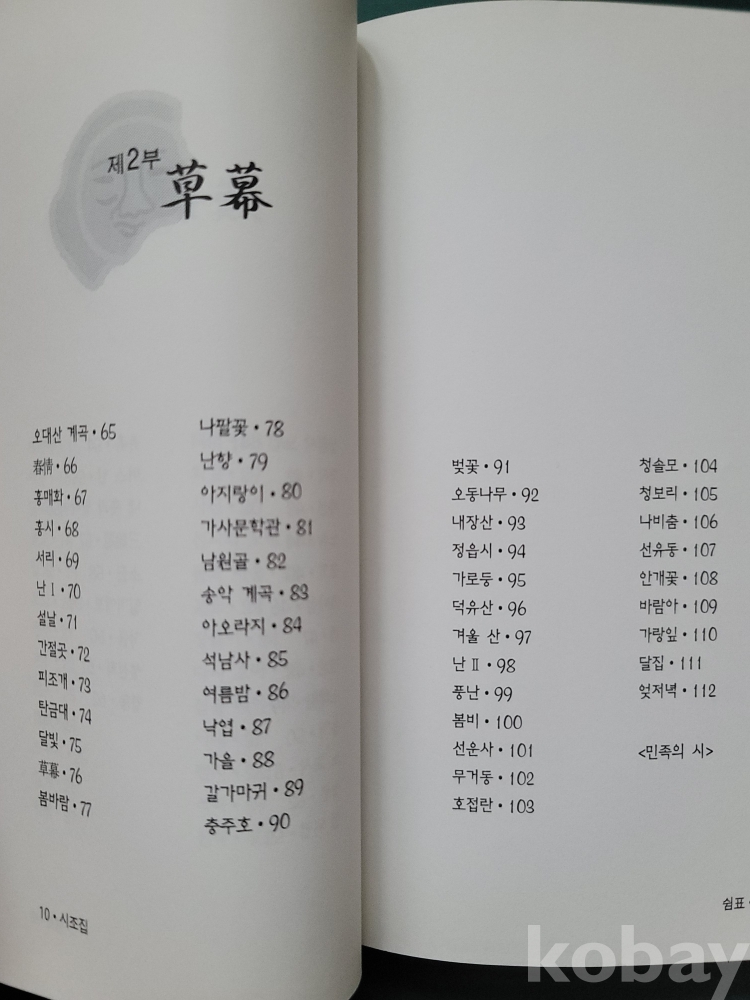 제2부
草幕
오대산 계곡 · 65
春情 · 66
홍매화 · 67
홍시 · 68
서리 · 69
난 Ⅰ · 70
설날 · 71
간절곳 · 72
피조개 · 73
탄금대 · 74
달빛 · 75
草幕 · 76
봄바람 · 77
나팔꽃 · 78
난향 · 79
아지랑이 · 80
가사문학관 · 81
남원골 · 82
송악 계곡 · 83
아오라지 · 84
석남사 · 85
여름밤 · 86
낙엽 · 87
가을 · 88
갈가마귀 · 89
충주호 · 90
10 · 시조집
벚꽃 · 91
오동나무 · 92
내장산 · 93
정읍시 · 94
가로등 · 95
덕유산 · 96
겨울 산 · 97
난 Ⅱ · 98
풍난 · 99
봄비 · 100
선운사 · 101
무거동 · 102
호접란 · 103
청솔모 · 104
청보리 · 105
나비춤 · 106
선유동 · 107
안개꽃 · 108
바람아 · 109
가랑잎 · 110
달집 · 111
엊저녁 · 112
<민족의 시>
쉼표 ·
kobay